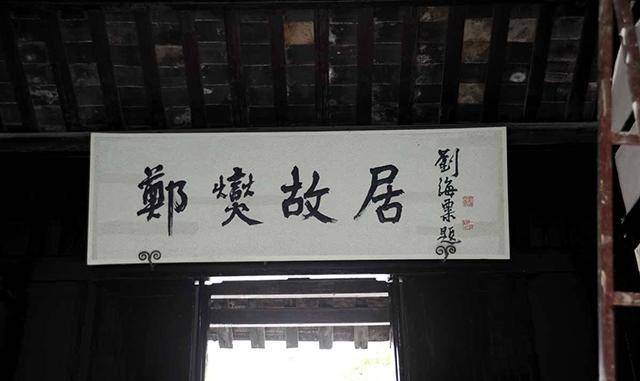 鄭燮故居
劉海粟題